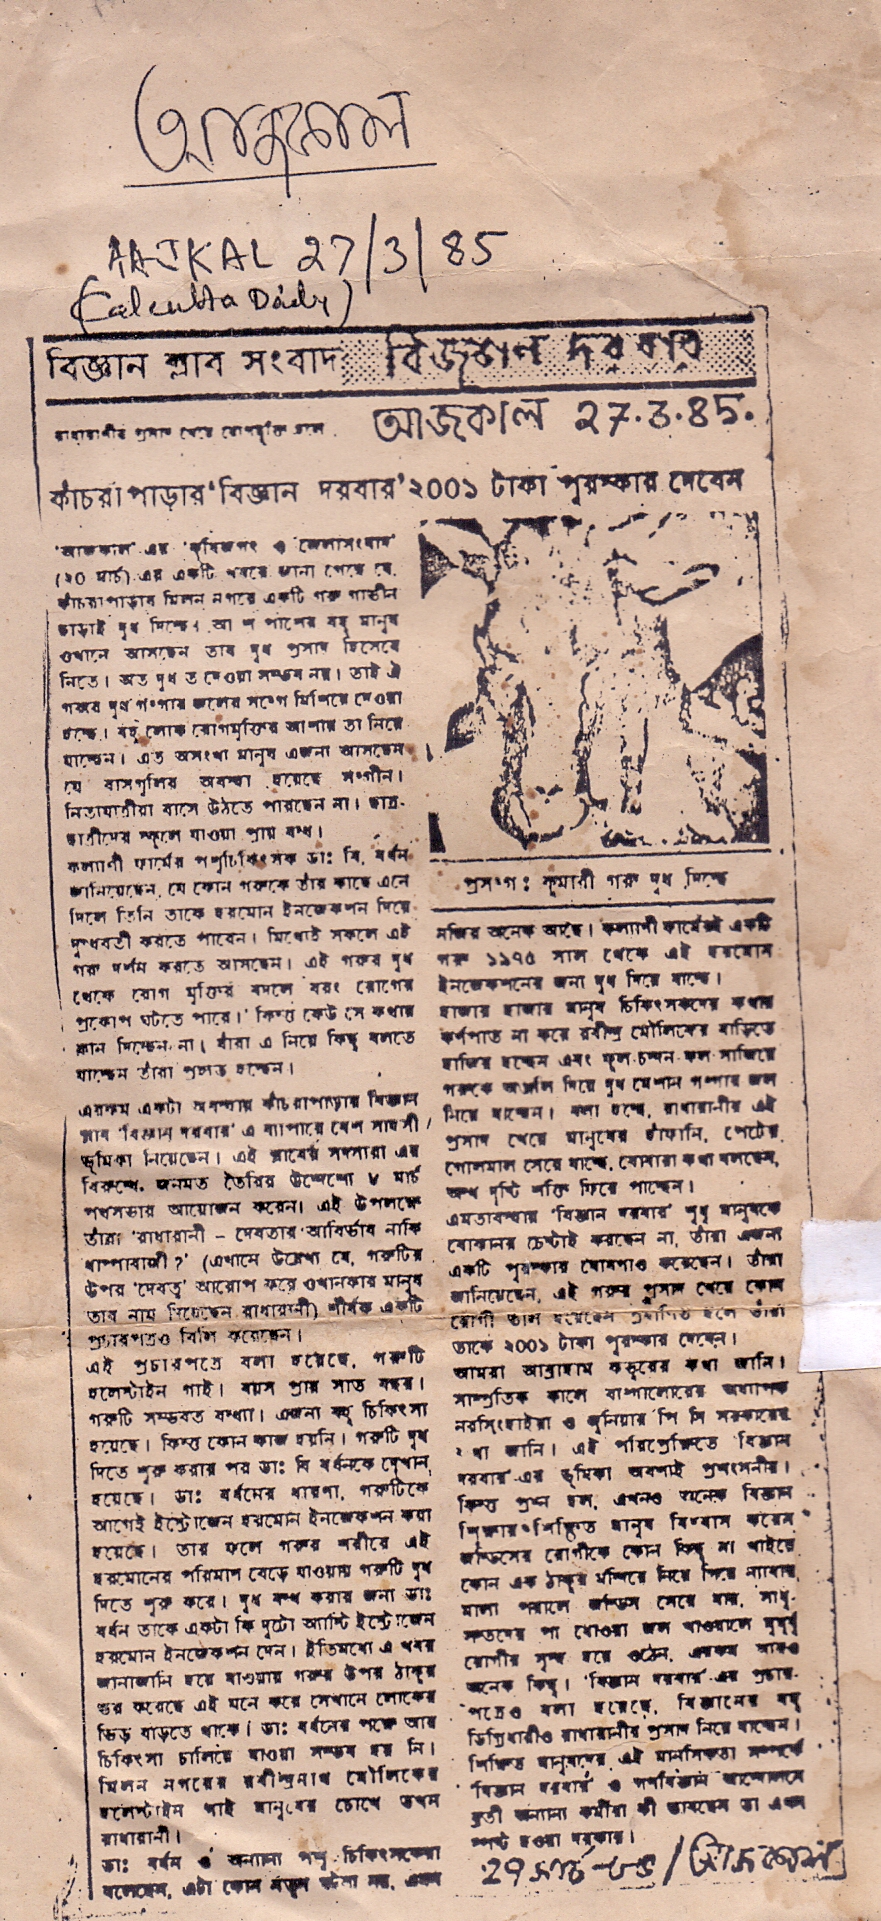 আজকাল
AAJKAL 27/3/85
(Calcutta Daily)
বিজ্ঞান ক্লাব সংবাদ বিজ্ঞান দরবার
রাধারাণীর প্রসাদ খেয়ে রোগমুক্তি হলে
আজকাল 27.3.85.
কাঁচরাপাড়ার 'বিজ্ঞান দরবার' ২০০১ টাকা পুরস্কার দেবেন
'আজকাল' এর 'কৃষিজগৎ ও জেলাসংবাদ'
(২০ মার্চ) এর একটি খবরে জানা গেছে যে,
কাঁচরাপাড়ার মিলন নগরে একটি গরু গাভীন
ছাড়াই দুধ দিচ্ছে। আশপাশের বহু মানুষ
ওখানে আসছেন তার দুধ প্রসাদ হিসেবে
নিতে। অত দুধ ত দেওয়া সম্ভব নয়। তাই ঐ
গরুর দুধ গংগার জলের সংগে মিশিয়ে দেওয়া
হচ্ছে। বহু লোক রোগমুক্তির আশায় তা নিয়ে
যাচ্ছেন। এত অসংখ্য মানুষ এজন্য আসছেন
যে বাসগুলির অবস্থা হয়েছে সংগীন।
নিত্যযাত্রীরা বাসে উঠতে পারছেন না। ছাত্র-
ছাত্রীদের স্কুলে যাওয়া প্রায় বন্ধ।
কল্যাণী ফার্মের পশুচিকিৎসক ডাঃ বি, বর্ধন
জানিয়েছেন, যে কোন গরুকে তাঁর কাছে এনে
দিলে তিনি তাকে হরমোন ইনজেকশন দিয়ে
দুগ্ধবতী করতে পারেন। মিথ্যেই সকলে এই
গরু দর্শন করতে আসছেন। এই গরুর দুধ
থেকে রোগ মুক্তির বদলে বরং রোগের
প্রকোপ ঘটতে পারে।' কিন্তু কেউ সে কথায়
কান দিচ্ছেন না। যাঁরা এ নিয়ে কিছু বলতে
যাচ্ছেন তাঁরা প্রহৃত হচ্ছেন।
এরকম একটা অবস্থায় কাঁচরাপাড়ার বিজ্ঞান
ক্লাব 'বিজ্ঞান দরবার' এ ব্যাপারে বেশ সাহসী
ভূমিকা নিয়েছেন। এই ক্লাবের সদস্যরা এর
বিরুদ্ধে জনমত তৈরির উদ্দেশ্যে ৮ মার্চ
পথসভার আয়োজন করেন। এই উপলক্ষে
তাঁরা 'রাধারানী – দেবতার আবির্ভাব নাকি
ধাপ্পাবাজী ?' (এখানে উল্লেখ্য যে, গরুটির
উপর 'দেবত্ব' আরোপ করে ওখানকার মানুষ
তার নাম দিয়েছেন রাধারানী) শীর্ষক একটি
প্রচারপত্রও বিলি করেছেন।
এই প্রচারপত্রে বলা হয়েছে, গরুটি
হলেস্টাইন গাই। বয়স প্রায় সাত বছর।
গরুটি সম্ভবত বন্ধ্যা। এজন্য বহু চিকিৎসা
হয়েছে। কিন্তু কোন কাজ হয়নি। গরুটি দুধ
দিতে শুরু করার পর ডাঃ বি বর্ধনকে দেখান
হয়েছে। ডাঃ বর্ধনের ধারণা, গরুটিকে
আগেই ইস্ট্রোজেন হরমোন ইনজেকশন করা
হয়েছে। তার ফলে গরুর শরীরে এই
হরমোনের পরিমাণ বেড়ে যাওয়ায় গরুটি দুধ
দিতে শুরু করে। দুধ বন্ধ করার জন্য ডাঃ
বর্ধন তাকে একটা কি দুটো অ্যান্টি ইস্ট্রোজেন
হরমোন ইনজেকশন দেন। ইতিমধ্যে এ খবর
জানাজানি হয়ে যাওয়ায় গরুর উপর ঠাকুর
ভর করেছে এই মনে করে সেখানে লোকের
ভিড় বাড়তে থাকে। ডাঃ বর্ধনের পক্ষে আর
চিকিৎসা চালিয়ে যাওয়া সম্ভব হয় নি।
মিলন নগরের রবীন্দ্রনাথ মৌলিকের
হলেস্টাইন গাই মানুষের চোখে তখন
রাধারানী।
ডাঃ বর্ধন ও অন্যান্য পশু চিকিৎসকেরা
বলেছেন, এটা কোন নতুন ঘটনা নয়, এমন
প্রসংগ: কুমারী গরু দুধ দিচ্ছে
নজির অনেক আছে। কল্যাণী ফার্মেরই একটি
গরু ১৯৭৫ সাল থেকে এই হরমোন
ইনজেকশনের জন্য দুধ দিয়ে যাচ্ছে।
হাজার হাজার মানুষ চিকিৎসকদের কথায়
কর্ণপাত না করে রবীন্দ্র মৌলিকের বাড়িতে
হাজির হচ্ছেন এবং ফুল চন্দন ফল সাজিয়ে
গরুকে অঞ্জলি দিয়ে দুধ মেশান গঙ্গার জল
নিয়ে যাচ্ছেন। বলা হচ্ছে, রাধারানীর এই
প্রসাদ খেয়ে মানুষের হাঁফানি, পেটের
গোলমাল সেরে যাচ্ছে, বোবারা কথা বলছেন,
অন্ধ দৃষ্টি শক্তি ফিরে পাচ্ছেন।
এমতাবস্থায় 'বিজ্ঞান দরবার' শুধু মানুষকে
বোঝানর চেষ্টাই করছেন না, তাঁরা এজন্য
একটি পুরস্কার ঘোষণাও করেছেন। তাঁরা
জানিয়েছেন, এই গরুর প্রসাদ খেয়ে কোন
রোগী ভাল হয়েছেন প্রমাণিত হলে তাঁরা
তাকে ২০০১ টাকা পুরস্কার দেবেন।
আমরা আব্রাহাম কভুরের কথা জানি।
সাম্প্রতিক কালে বাঙ্গালোরের অধ্যাপক
নরসিংহাইয়া ও জুনিয়ার পি সি সরকারের
কথা জানি। এই পরিপ্রেক্ষিতে 'বিজ্ঞান
দরবার' এর ভূমিকা অবশ্যই প্রশংসনীয়।
কিন্তু প্রশ্ন হল, এখনও অনেক বিজ্ঞান
শিক্ষায় শিক্ষিত মানুষ বিশ্বাস করেন
জন্ডিসের রোগীকে কোন কিছু না খাইয়ে
কোন এক ঠাকুর মন্দিরে নিয়ে গিয়ে ন্যাবার
মালা পরালে জন্ডিস সেরে যায়, সাধু-
সন্তদের পা ধোওয়া জল খাওয়ালে মুমূর্ষু
রোগীর সুস্থ হয়ে ওঠেন, এরকম আরও
অনেক কিছু। 'বিজ্ঞান দরবার'-এর প্রচার-
পত্রেও বলা হয়েছে, বিজ্ঞানের বহু
ডিগ্রিধারীও রাধারানীর প্রসাদ নিয়ে যাচ্ছেন।
শিক্ষিত মানুষদের এই মানসিকতা সম্পর্কে
'বিজ্ঞান দরবার' ও গণবিজ্ঞান আন্দোলনে
ব্রতী অন্যান্য কর্মীরা কী ভাবছেন তা এখন
স্পষ্ট হওয়া দরকার।
২৭ মার্চ - ৮৫ / আজকাল